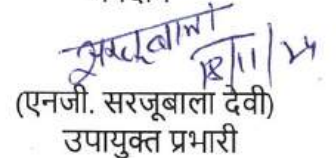 सरजूबाला
18/11/24
(एनजी. सरजूबाला देवी)
उपायुक्त प्रभारी